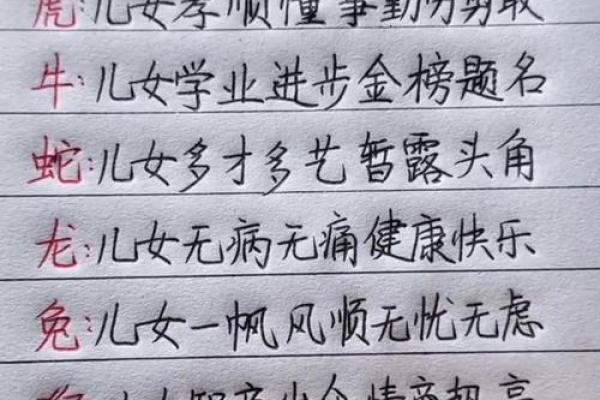 虎:儿女孝顺懂事勤劳勇敢
牛:儿女学业进步金榜题名
蛇:儿女多才多艺暂露头角
龙:儿女无病无痛健康快乐
兔:儿女一帆风顺无忧无虑
情商超高